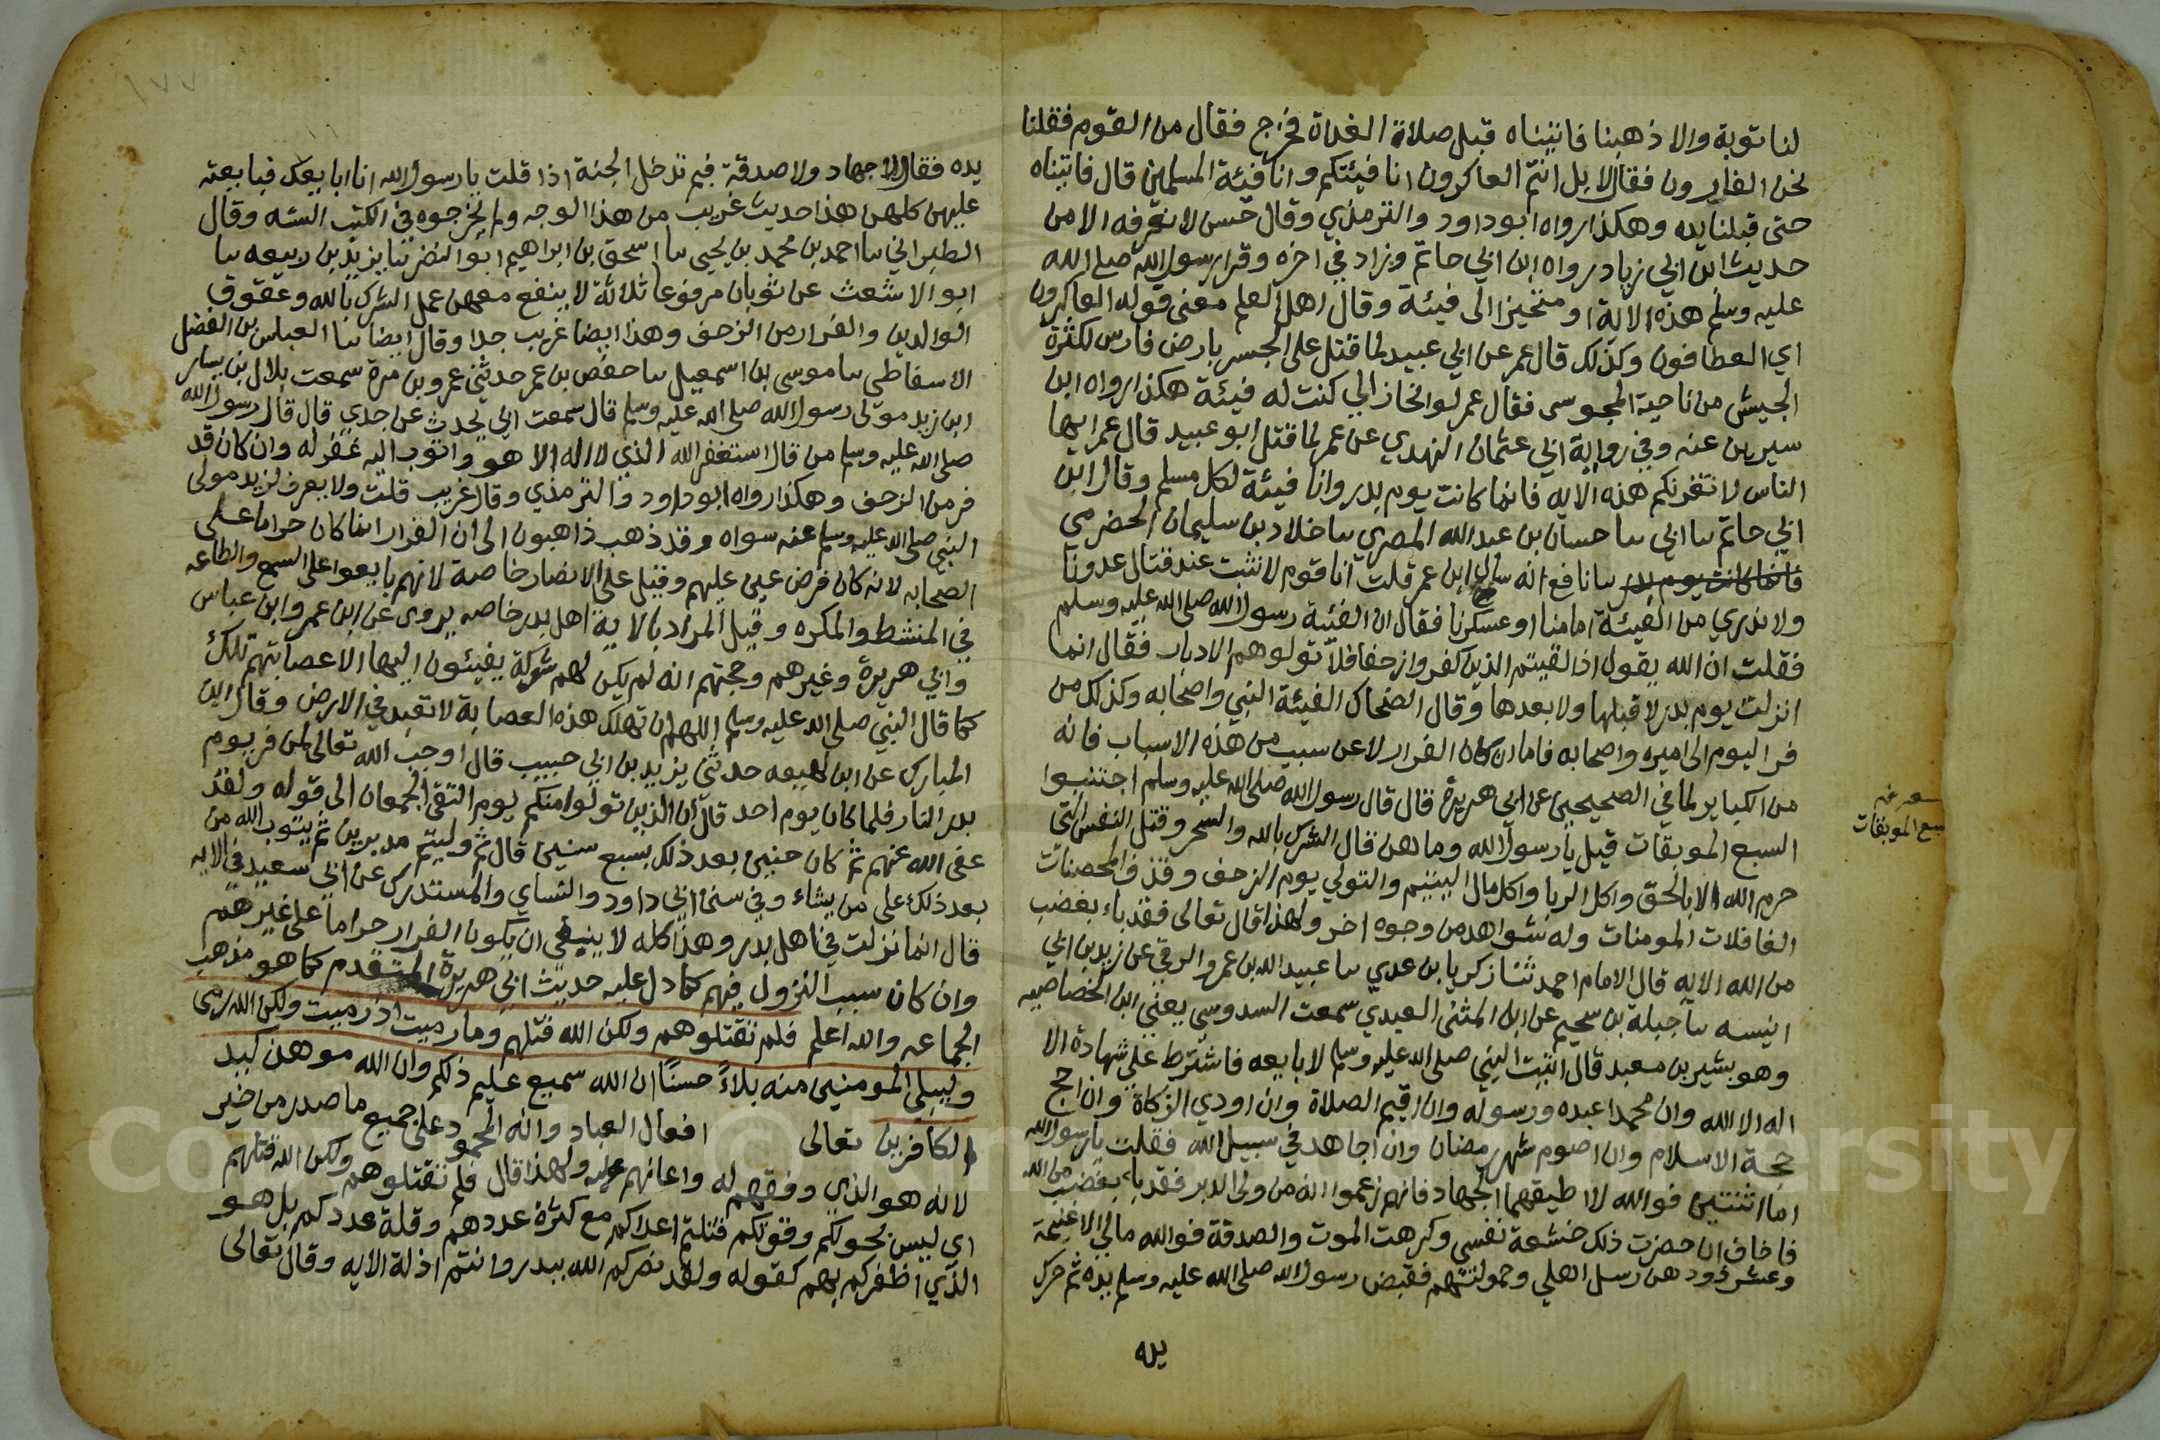 لنا توبة والا ذهبنا فاتيناه قبل صلاة الغداة فخرج فقال من القوم فقلنا
نحن الفارون فقال لا بل انتم العاكرون انا فيئتكم وانا فيئة المسلمين قال فاتيناه
حتى قبلنا يده وهكذا رواه ابو داود والترمذي وقال حسن لا نعرفه الا من
حديث ابن ابي زياد رواه ابن ابي حاتم وزاد في اخره وقرا رسول الله صلى الله
عليه وسلم هذه الاية او متحيزا الى فيئة وقال اهل العلم معنى قوله العاكرون
اي العطافون وكذلك قال عمر عن ابي عبيد لما قتل على الجسر بارض فارس لكثرة
الجيش من ناحية المجوسى فقال عمر لو انحاز الي كنت له فيئة هكذا رواه ابن
سيرين عنه وفي رواية ابي عثمان النهدي عن عمر لما قتل ابو عبيد قال عمر ايها
الناس لا تغرنكم هذه الايه فانما كانت يوم بدر وانا فيئة لكل مسلم وقال ابن
ابي حاتم سا ابي سا حسان بن عبد الله المصري سا خلاد بن سليمان الحضرمي
فانما كانت يوم بدر سا نافع انه سال ابن عمر قلت انا قوم لا نثبت عند قتال عدونا
ولا ندري من الفيئة امامنا او عسكرنا فقال ان الفئة رسول الله صلى الله عليه وسلم
فقلت ان الله يقول اذا لقيتم الذين كفروا زحفا فلا تولوهم الادبار فقال انما
انزلت يوم بدر لا قبلها ولا بعدها وقال الضحاك الفيئة النبي واصحابه وكذلك من
فر اليوم الى اميره واصحابه فاما ان كان الفرار لا عن سبب من هذه الاسباب فانه
من الكباير لما في الصحيحين عن ابي هريرة قال قال رسول الله صلى الله عليه وسلم اجتنبوا
السبع الموبقات قيل يا رسول الله وما هن قال الشرك بالله والسحر وقتل النفس التي
حرم الله الا بالحق واكل الربا واكل مال اليتيم والتولي يوم الزحف وقذف المحصنات
الغافلات المومنات وله شواهد من وجوه اخر ولهذا قال تعالى فقد باء بغضب
من الله الايه قال الامام احمد ثنا زكريا بن عدي سا عبيد الله بن عمرو الرقي عن زيد بن ابي
انيسه سا جبلة بن سحيم عن ابي المثنى العبدي سمعت السدوسي يعني ابن الخصاصيه
وهو بشير بن معبد قال اتيت النبي صلى الله عليه وسلم لابايعه فاشترط علي شهادة الا
اله الا الله وان محمدا عبده ورسوله وان اقيم الصلاة وان اودي الزكاة وان احج
حجة الاسلام وان اصوم شهر رمضان وان اجاهد في سبيل الله فقلت يا رسول الله
اما اثنتين فوالله لا اطيقهما الجهاد فانهم زعموا انه من ولى الدبر فقد باء بغضب من الله
فاخاف ان حضرت ذلك خشعة نفسي وكرهت الموت والصدقة فوالله مالي الا غنيمة
وعشر ذود هن رسل اهلي وحمولتهم فقبض رسول الله صلى الله عليه وسلم يده ثم حرك
يده
سبع الموبقات
يده فقال لا جهاد ولا صدقة فبم تدخل الجنة اذا قلت يا رسول الله انا ابايعك فبايعته
عليهن كلهن هذا حديث غريب من هذا الوجه ولم يخرجوه في الكتب السته وقال
الطبراني سا احمد بن محمد بن يحيى سا اسحق بن ابراهيم ابو النضر ثنا يزيد بن ربيعه سا
ابو الاشعث عن ثوبان مرفوعا ثلاثة لا ينفع معهن عمل الشرك بالله وعقوق
الوالدين والفرار من الزحف وهذا ايضا غريب جدا وقال ايضا ثنا العباس بن الفضل
الاسفاطي سا موسى بن اسمعيل سا حفص بن عمر حدثني عمرو بن مرة سمعت بلال بن يسار
ابن زيد مولى رسول الله صلى الله عليه وسلم قال سمعت ابي يحدث عن جدي قال قال رسول الله
صلى الله عليه وسلم من قال استغفر الله الذي لا اله الا هو واتوب اليه غفر له وان كان قد
فر من الزحف وهكذا رواه ابو داود والترمذي وقال غريب قلت ولا يعرف لزيد مولى
النبي صلى الله عليه وسلم عنه سواه وقد ذهب ذاهبون الى ان الفرار انما كان حراما على
الصحابه لانه كان فرض عين عليهم وقيل على الانصار خاصة لانهم بايعوا على السمع والطاعه
في المنشط والمكره وقيل المراد بالاية اهل بدر خاصه يروى عن ابن عمر وابن عباس
وابي هريرة وغيرهم وحجتهم انه لم يكن لهم شوكة يفيئون اليها الا عصابتهم تلك
كما قال النبي صلى الله عليه وسلم اللهم ان تهلك هذه العصابة لا تعبد في الارض وقال ابن
المبارك عن ابن لهيعه حدثني يزيد بن ابي حبيب قال اوجب الله تعالى لمن فر يوم
بدر النار فلما كان يوم احد قال ان الذين تولوا منكم يوم التقى الجمعان الى قوله ولقد
عفى الله عنهم ثم كان حنين بعد ذلك بسبع سنين قال ثم وليتم مدبرين ثم يتوب الله من
بعد ذلك على من يشاء وفي سنن ابي داود والنساي والمستدرك عن ابي سعيد في الايه
قال انما نزلت في اهل بدر وهذا كله لا ينبغي ان يكون الفرار حراما على غيرهم
وان كان سبب النزول فيهم كما دل عليه حديث ابي هريرة المتقدم كما هو مذهب
الجماعه والله اعلم فلم تقتلوهم ولكن الله قتلهم وما رميت اذ رميت ولكن الله رمى
وليبلي المومنين منه بلاءً حسنًا ان الله سميع عليم ذلكم وان الله موهن كيد
الكافرين تعالى افعال العباد وانه المحمود على جميع ما صدر من خير
لانه هو الذي وفقهم له واعانهم عليه ولهذا قال فلم تقتلوهم ولكن الله قتلهم
اي ليس بحولكم وقوتكم قتلتم اعداكم مع كثرة عددهم وقلة عددكم بل هو
الذي اظفركم بهم كقوله ولقد نصركم الله ببدر وانتم اذلة الايه وقال تعالى
١٧٧